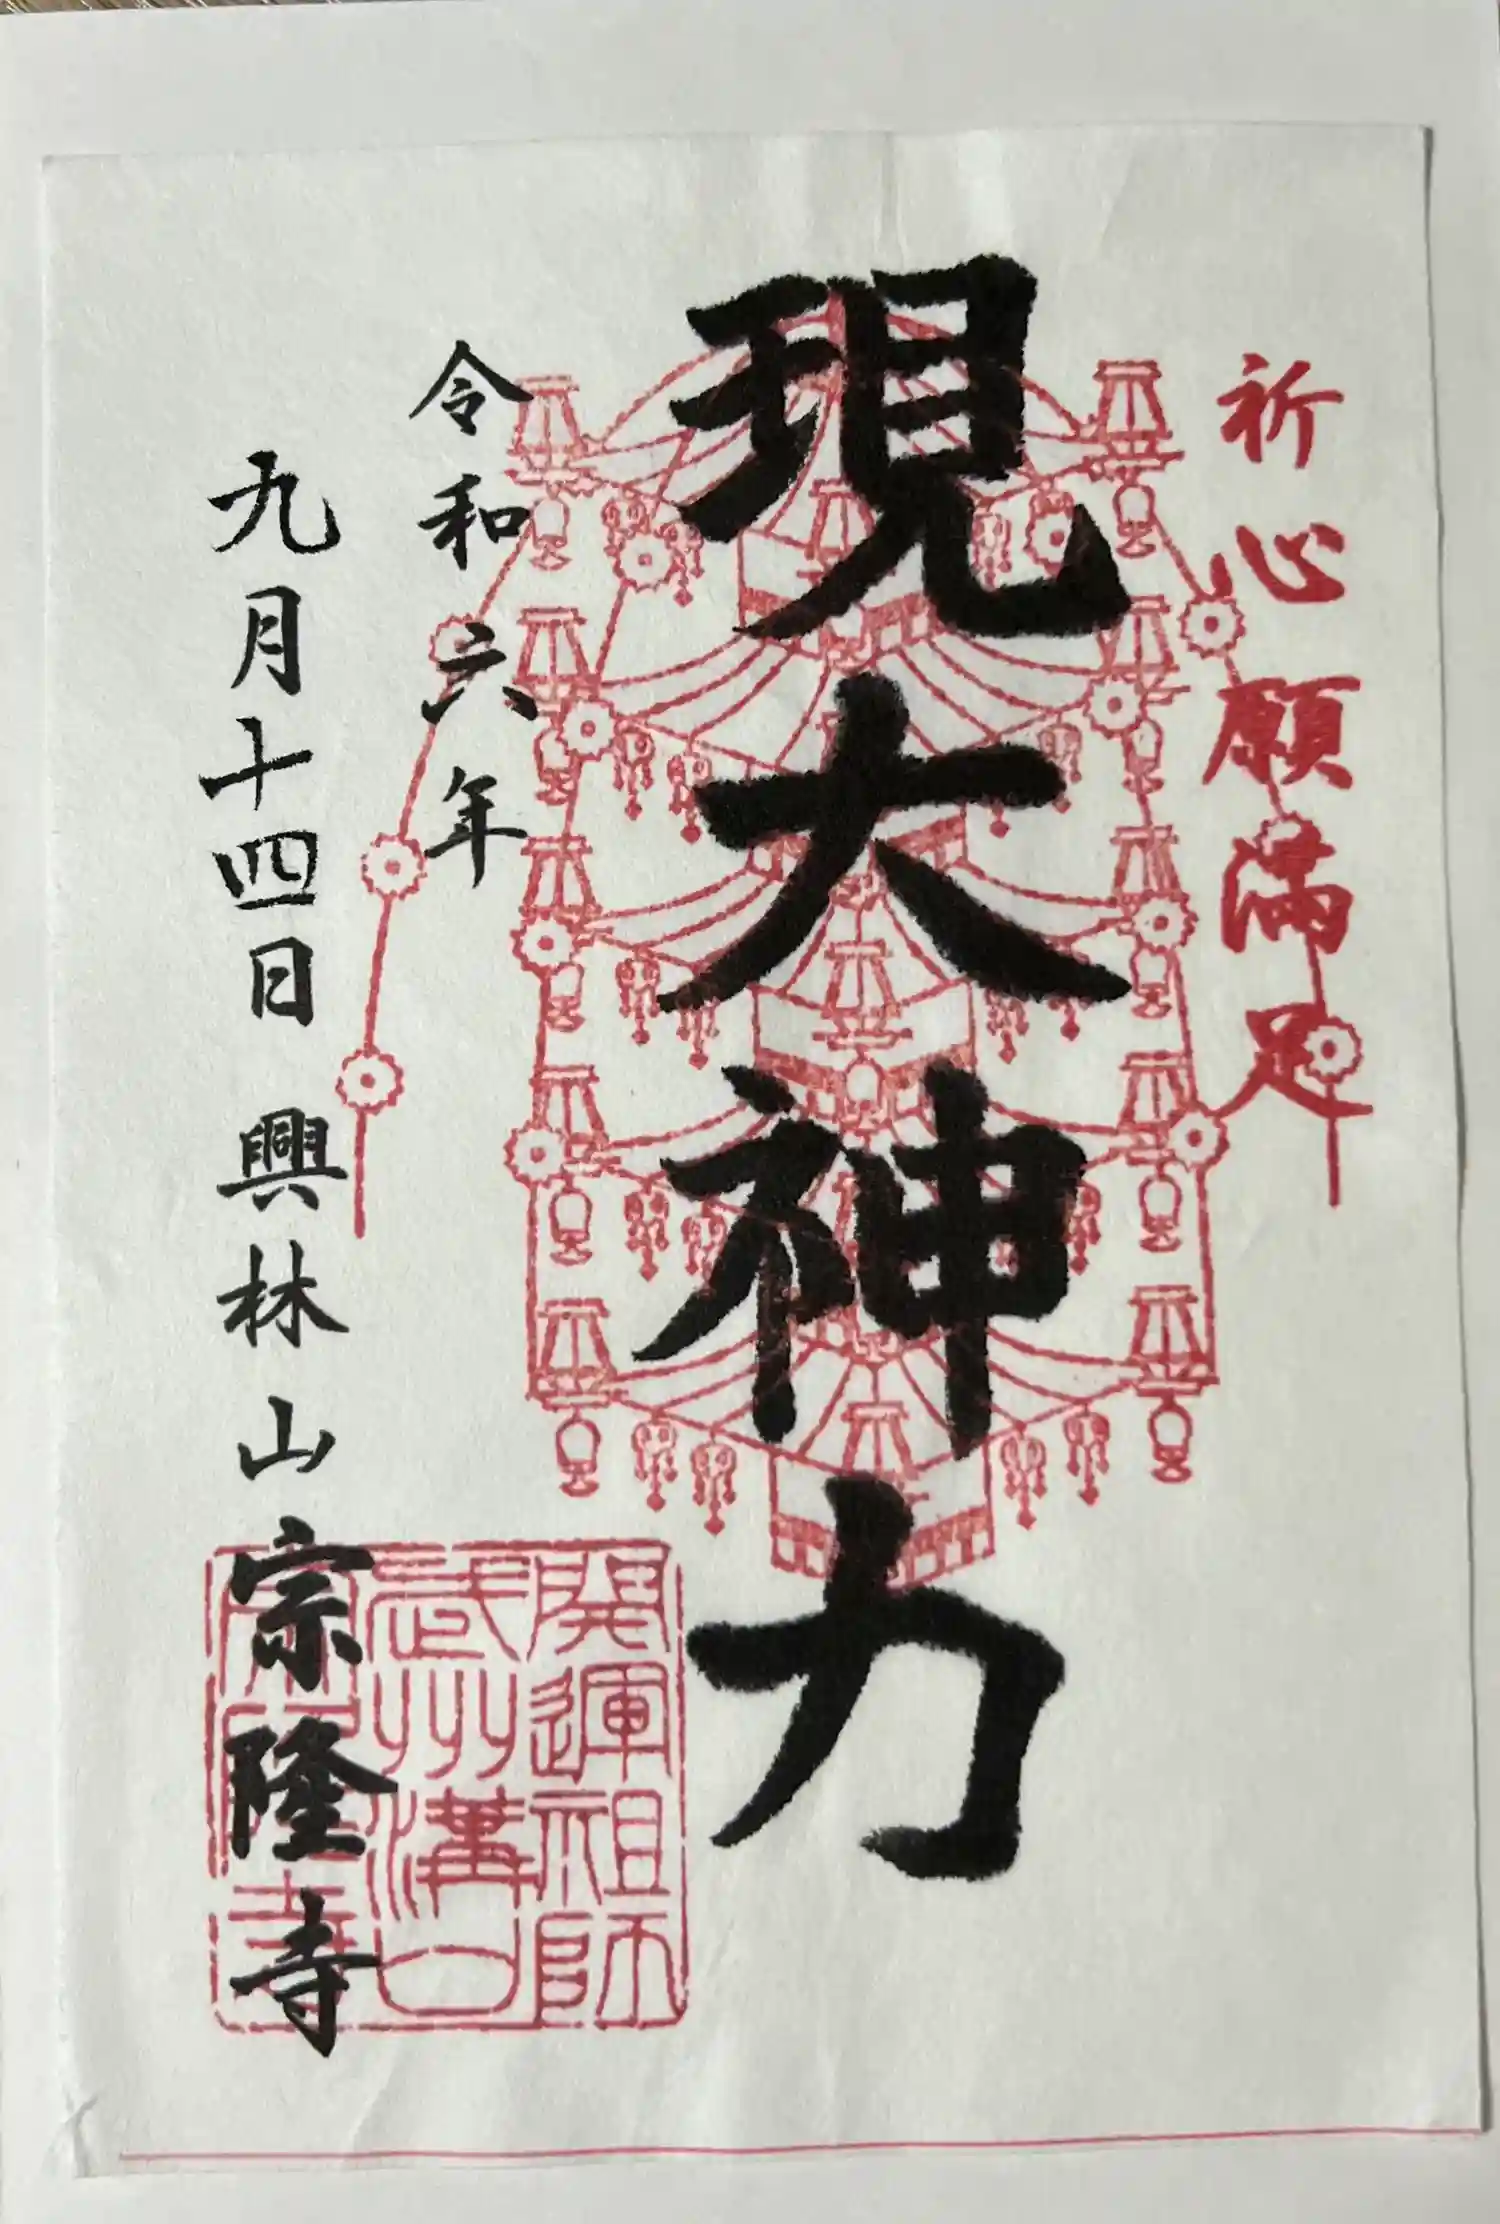 祈心願満足
現大神力
令和六年
九月十四日 興林山宗隆寺
開運祖師
武州溝口
宗隆寺